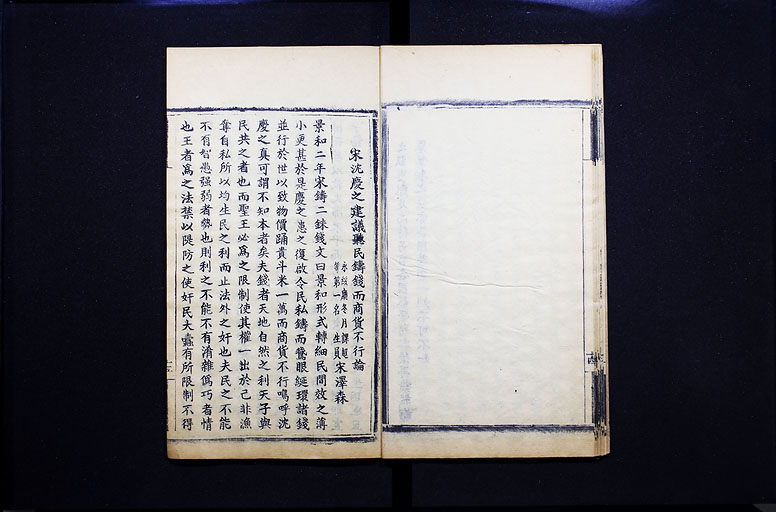 宋沈慶之建議聽民鑄錢而商貨不行論
永綏廳冬月課超
等第一名 生員宋澤森
景和二年宋鑄二銖錢文曰景和形式轉細民間效之薄
小更甚於是慶之患之復啟令民私鑄而鵞眼綖環諸錢
並行於世以致物價踊貴斗米一萬而商貨不行嗚呼沈
慶之真可謂不知本者矣夫錢者天地自然之利天子與
民共之者也而聖王必為之限制使其權一出於己非漁
奪自私所以均生民之利而止法外之奸也夫民之不能
不有智愚强弱者勢也則利之不能不有淆雜偽巧者情
也王者為之法禁以隄防之使奸民大蠹有所限制不得